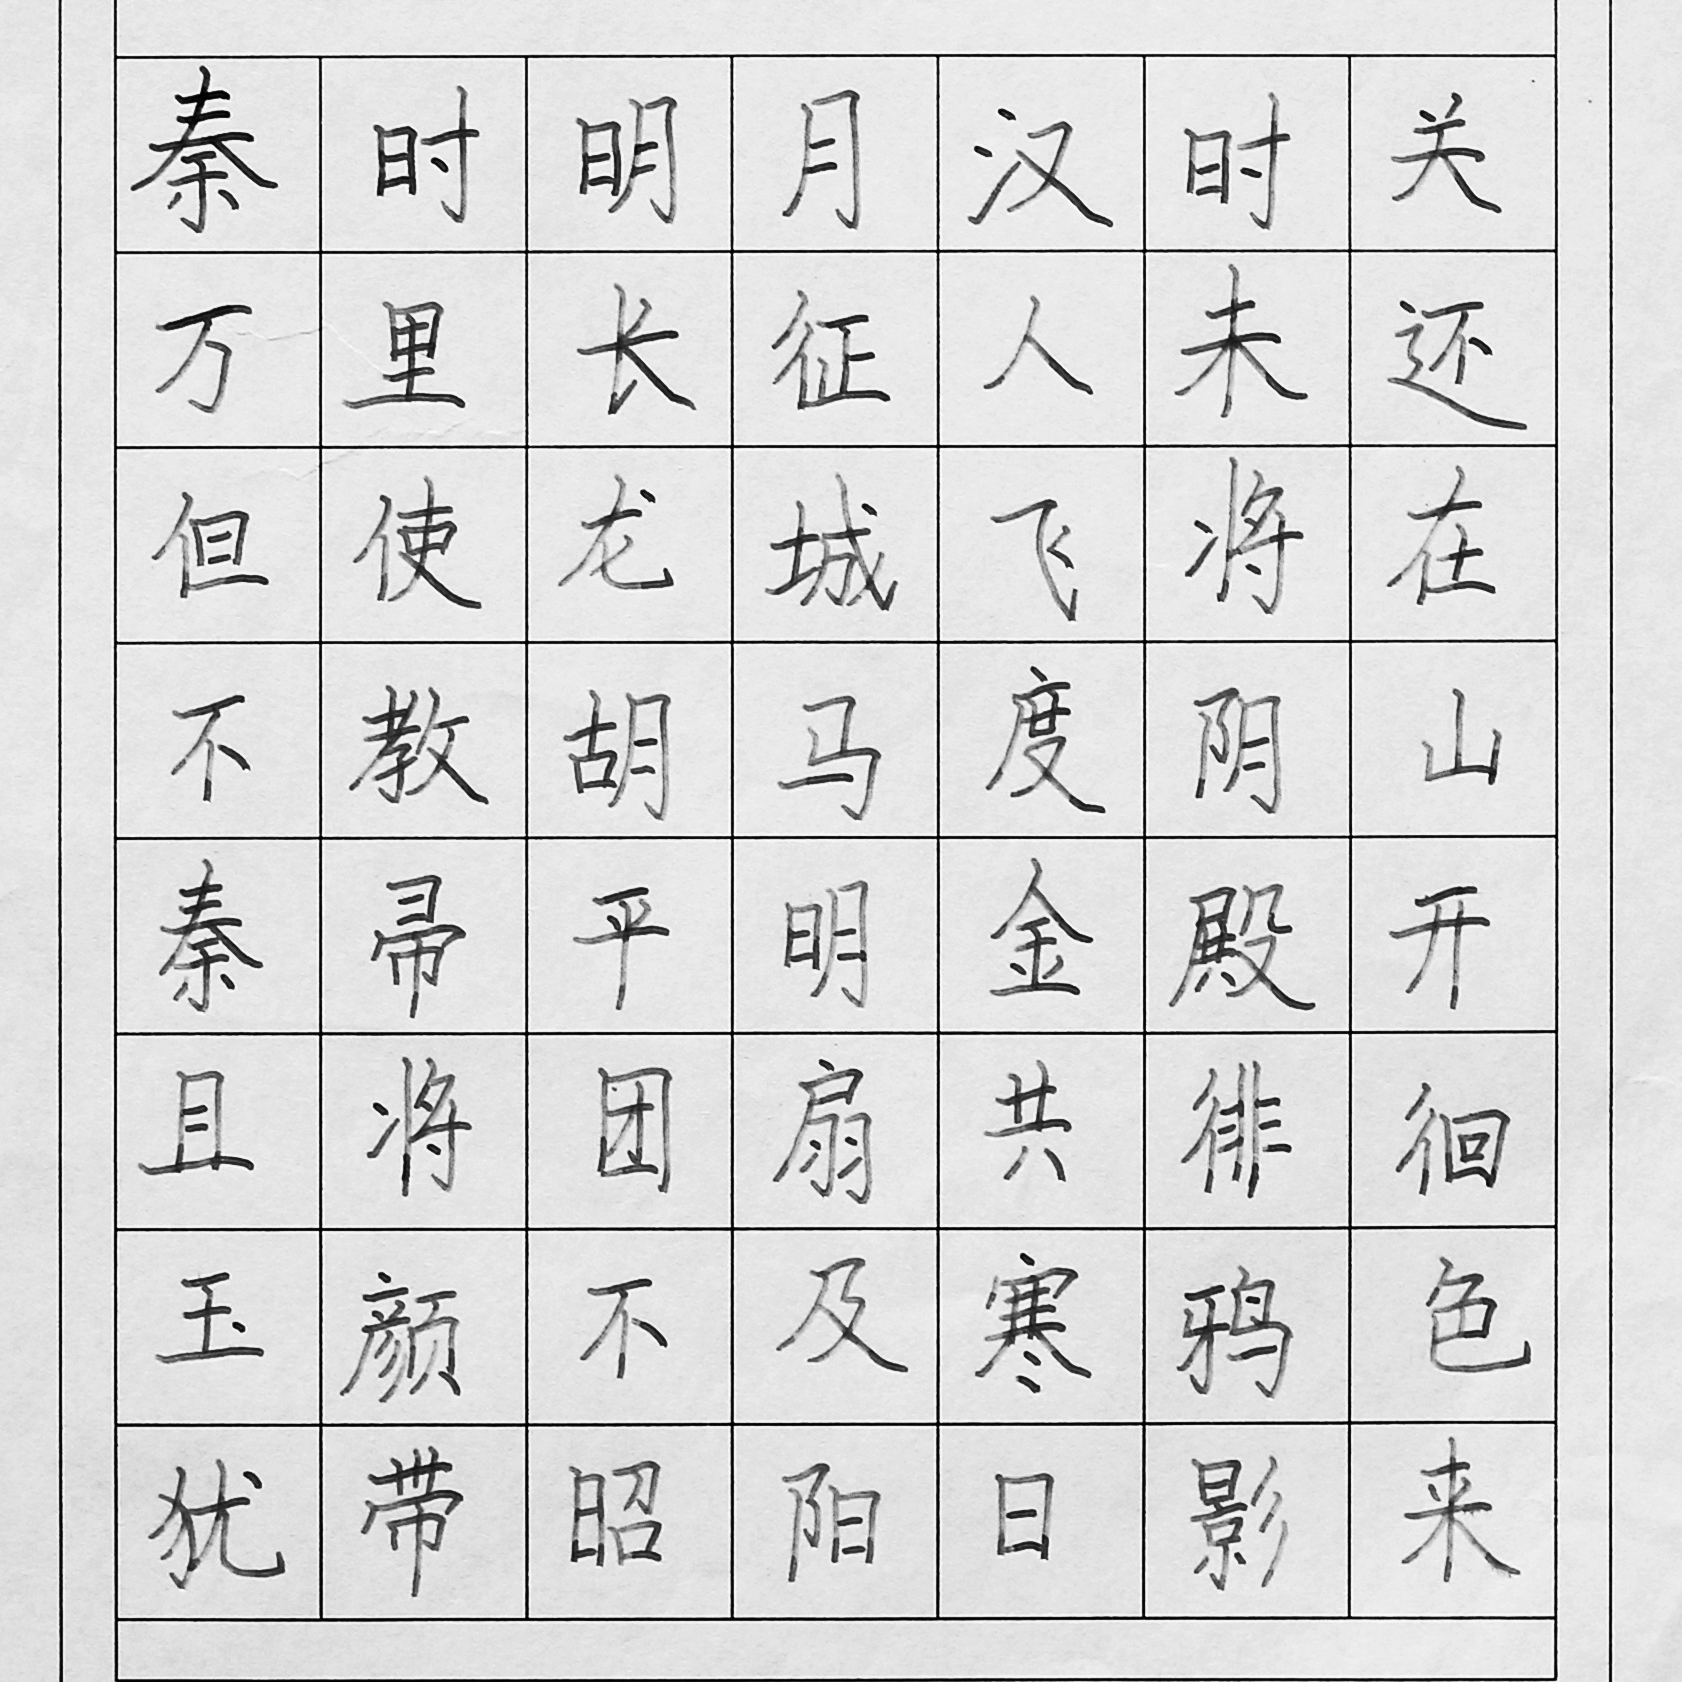 秦时明月汉时关
万里长征人未还
但使龙城飞将在
不教胡马度阴山
秦帚平明金殿开
且将团扇共徘徊
玉颜不及寒鸦色
犹带昭阳日影来